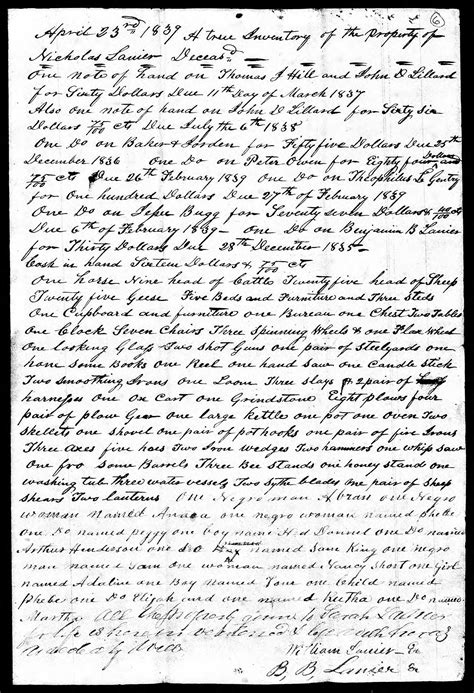 6
April 23rd 1839 A true Inventory of the Property of
Nicholas Lanier Deceasd
One note of hand on Thomas J Hill and John D Lillard
for Sixty Dollars Due 11th Day of March 1837
Also one note of hand on John D Lillard for Sixty Six
Dollars 75/100 cts Due July the 6th 1838
One Do on Baker & Jorden for Fifty five Dollars Due 25th
December 1836 One Do on Peter Owen for Eighty four Dollars and
75/100 cts Due 26th February 1839 One Do on Theophilus L Gentry
for One hundred Dollars Due 27th of February 1839
One Do on Bugg for Seventy seven Dollars &
Due 6th of February 1839 — One Do on Benjamin B Lanier
for Thirty Dollars Due 28th December 1835 —
Cash in hand Sixteen Dollars & 75/100 cts
One horse Nine head of Cattle Twenty five head of Sheep
Twenty five Geese Five Beds and Furniture and Three Steds
One Cupboard and furniture one Bureau one Chest Two Tables
One Clock Seven Chairs Three Spinning Wheels & one Flax Wheel
One looking Glass Two shot Guns one pair of Steelyards one
hone Some Books one Reel one hand saw one Candle stick
Two Smoothing Irons one Loom Three slays 2 pair of
harnesses one ox Cart one Grindstone Eight plows four
pair of plow Gear one large kettle one pot one Oven Two
skellets one shovel one pair of pot hooks one pair of fire Irons
Three Axes five hoes Two Iron wedges Two hammers one whip saw
One fro some Barrels Three Bee stands one honey stand one
washing tub three water vessels Two sythe blades one pair of sheep
shears Two lanterns One Negro man Abram one Negro
woman named one negro woman named
one Do named peggy one boy name one Do named
Arthur Henderson one Do named Sam King one negro
man named Sam one woman named Nancy Short one Girl
named Adaline one Boy named one Child named
Phebe one Do Elijah and one named one Do named
Martha All the property given to Sarah Lanier
for life

William Lanier Ex
B, B, Lanier Ex